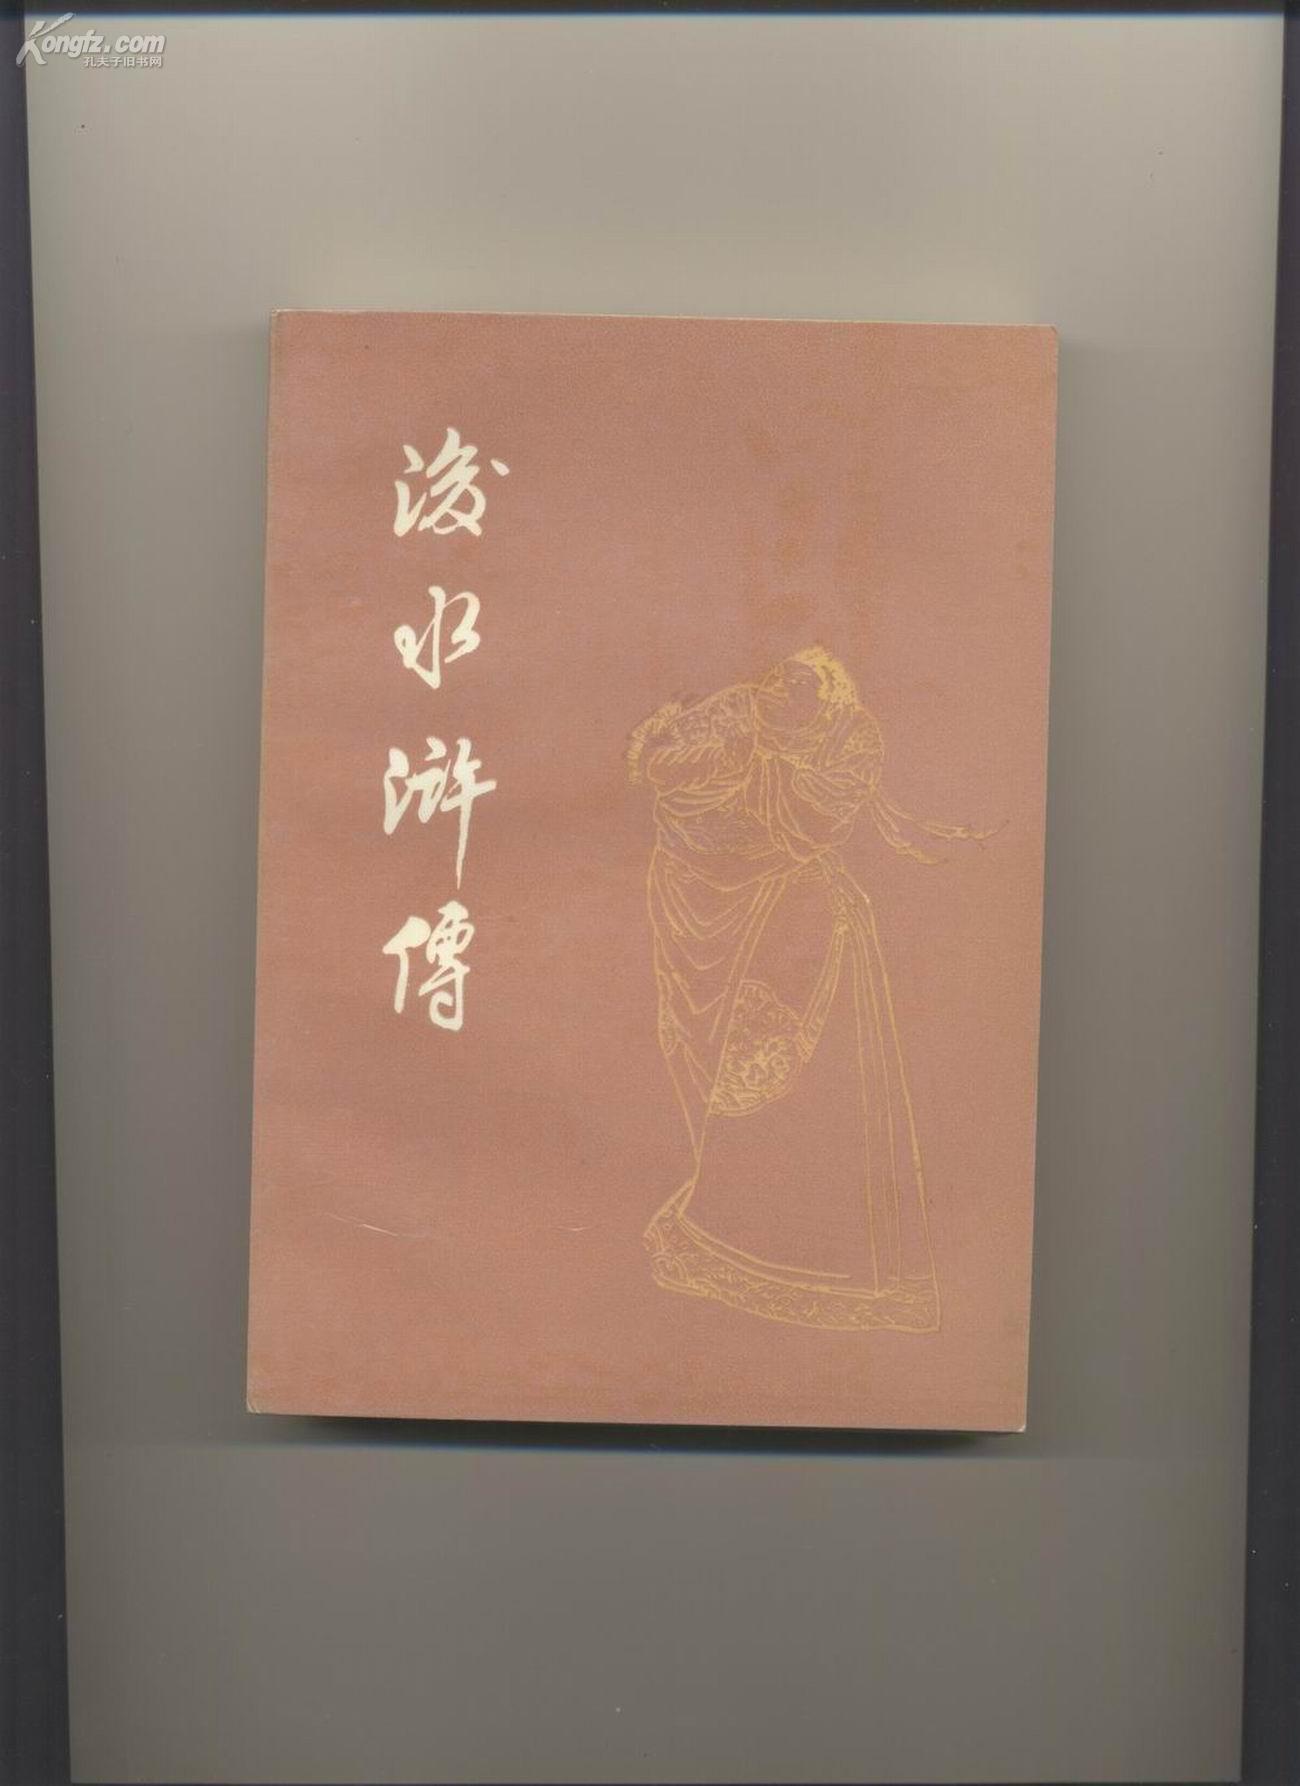 Kongfz.com
孔夫子旧书网
後水滸傳